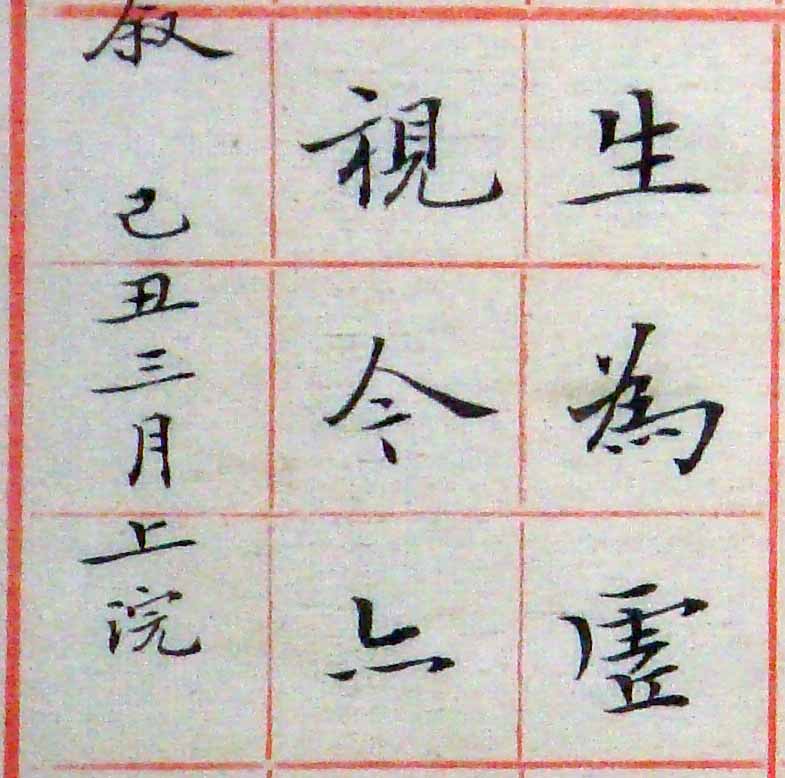 生為虛
視今亦
叙
己丑三月上浣